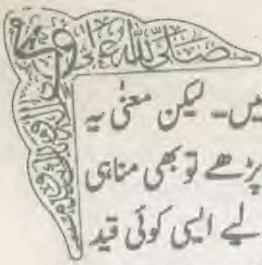 صلی اللہ علی
ہیں۔ لیکن معنٰی یہ
پڑھے تو بھی مناہی
لیے ایسی کوئی قید